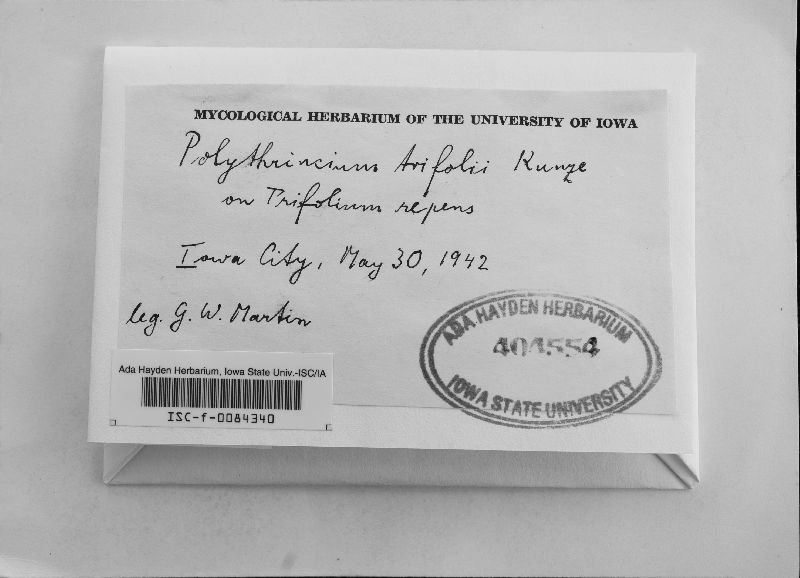 MYCOLOGICAL HERBARIUM OF THE UNIVERSITY OF IOWA
Polythrincium trifolii Kunze
on Trifolium repens
Iowa City, May 30, 1942
leg. G. W. Martin
ADA HAYDEN HERBARIUM
404554
IOWA STATE UNIVERSITY
Ada Hayden Herbarium, Iowa State Univ.-ISC/IA
ISC-f-0084340